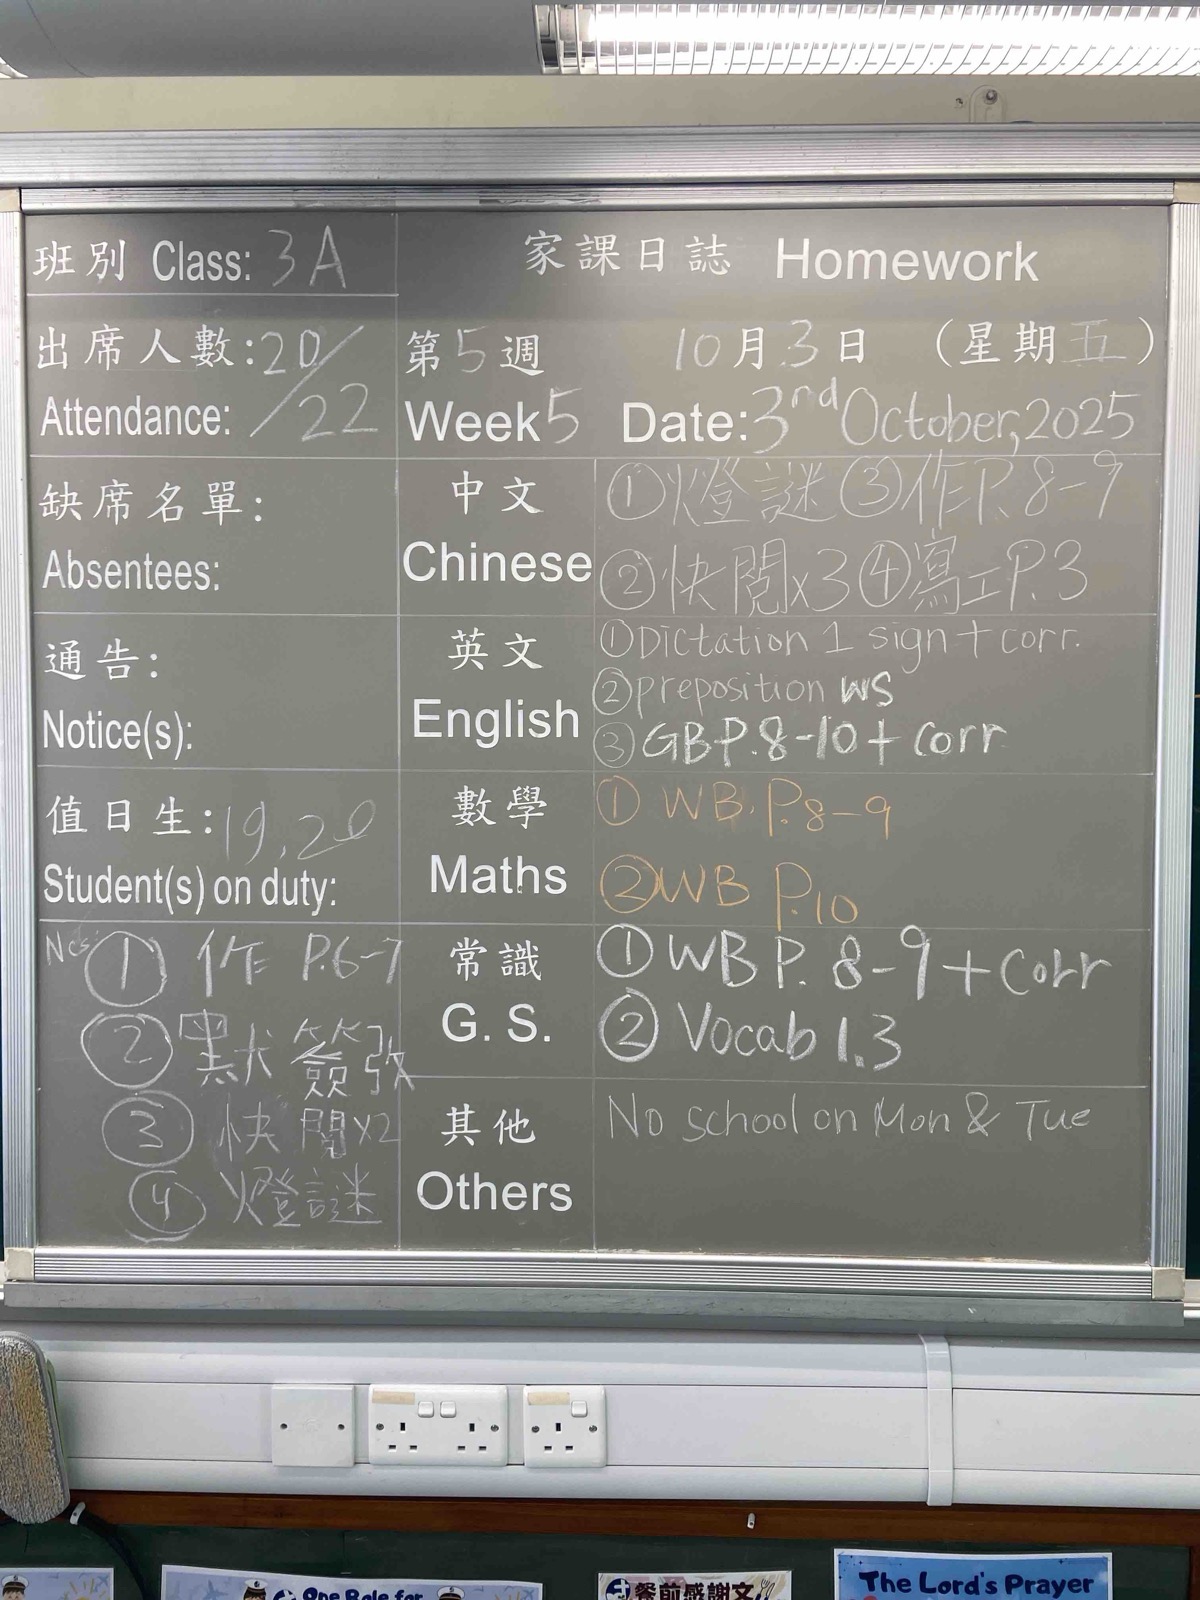 班別 Class: 3A
家課日誌 Homework
出席人數: 20/22
Attendance:
第5週 10月3日 (星期五)
Week 5 Date: 3nd October, 2025
缺席名單:
Absentees:
中文
Chinese
①燈謎 ③作P.8-9
②快閱x3 ④寫工P.3
通告:
Notice(s):
英文
English
①Dictation 1 sign + corr.
②preposition WS
③GB P.8-10 + corr
值日生: 19, 20
Student(s) on duty:
數學
Maths
① WB. P.8-9
② WB P.10
Ncs
① 作 P.6-7
② 默簽改
③ 快閱x2
④ 燈謎
常識
G. S.
① WB P. 8-9 + corr
② Vocab 1.3
其他
Others
No school on Mon & Tue
One Role for
餐前感謝文
The Lord's Prayer